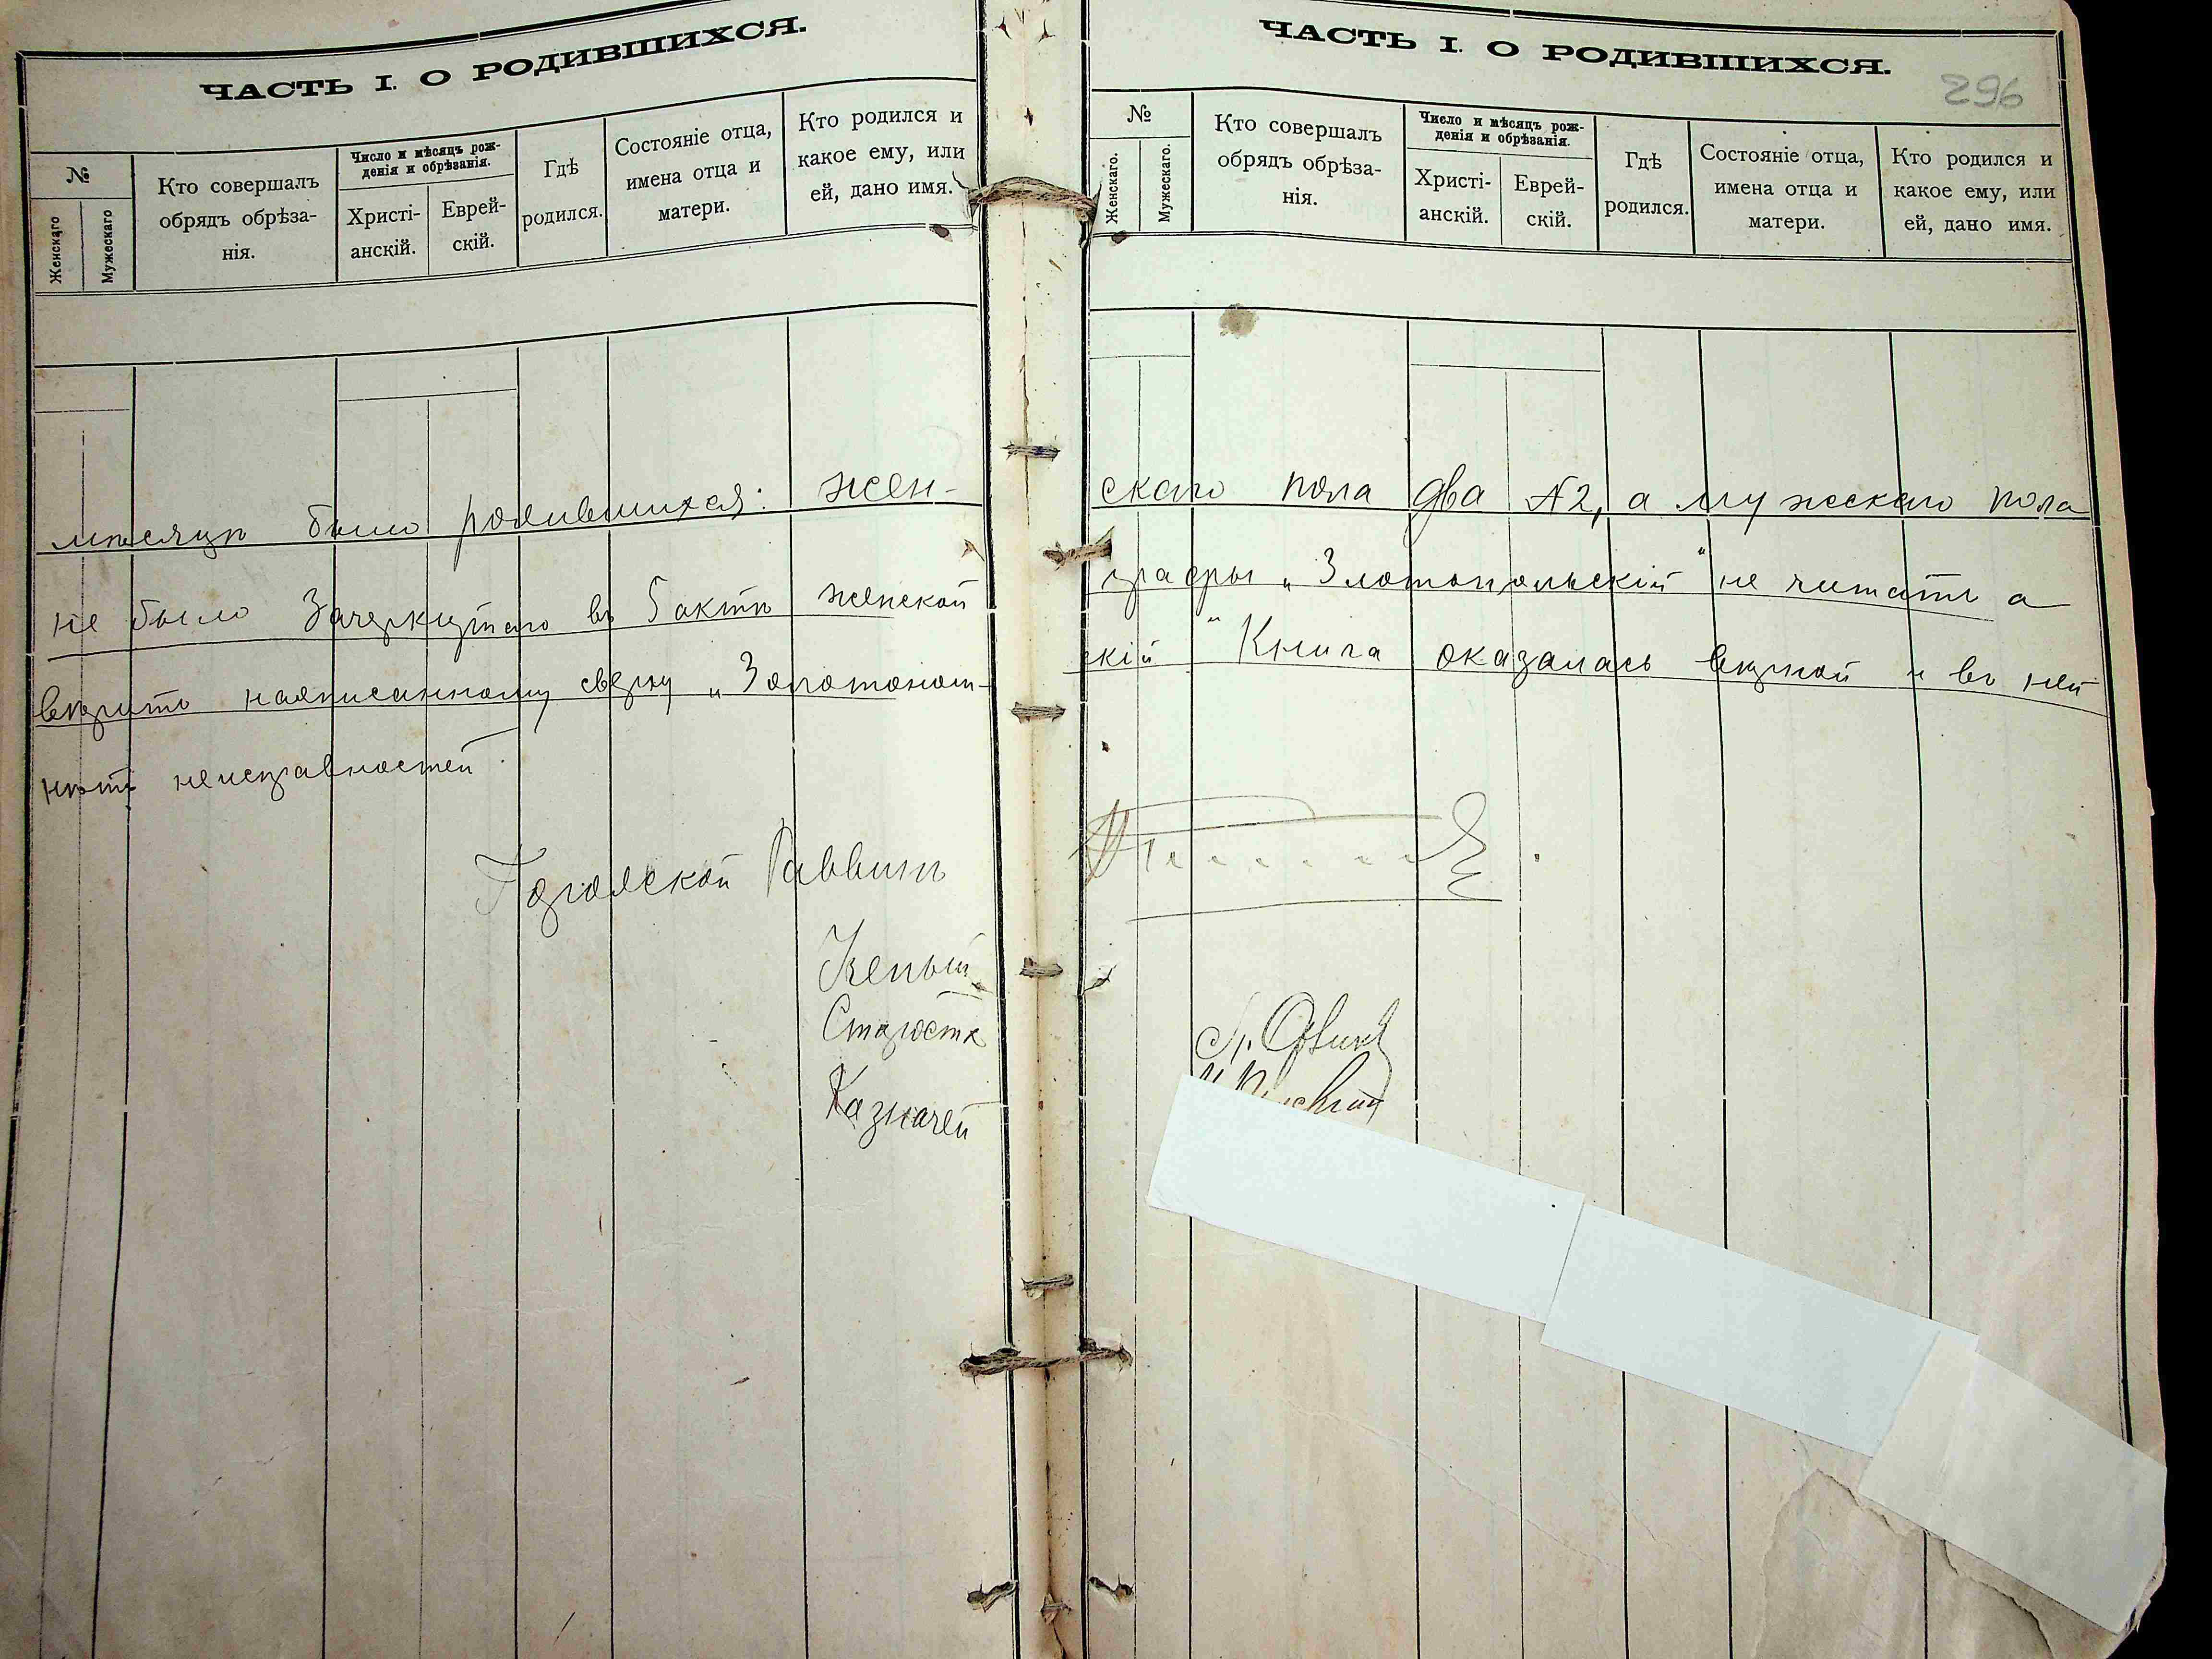 ЧАСТЬ I. О РОДИВШИХСЯ.
№
Женскаго
Мужескаго
Кто совершалъ
обрядъ обрѣза-
нія.
Число и мѣсяцъ рож-
денія и обрѣзанія.
Христі-
анскій.
Еврей-
скій.
Гдѣ
родился.
Состояніе отца,
имена отца и
матери.
Кто родился и
какое ему, или
ей, дано имя.
ЧАСТЬ I. О РОДИВШИХСЯ.
296
№
Женскаго.
Мужескаго.
Кто совершалъ
обрядъ обрѣза-
нія.
Число и мѣсяцъ рож-
денія и обрѣзанія.
Христі-
анскій.
Еврей-
скій.
Гдѣ
родился.
Состояніе отца,
имена отца и
матери.
Кто родился и
какое ему, или
ей, дано имя.
мѣсяцѣ было родившихся: жен- скаго пола два №2, а мужескаго пола
не было Зачеркнутаго въ 5 актѣ женской графы „Златопольскій“ не читать а
вѣрить надписанному сверху „Золотонош- скій“ Книга оказалась вѣрной и въ ней
нѣтъ неисправностей.
Городской Раввинъ
Ученый
Староста
Казначей